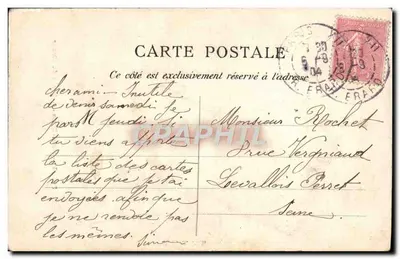 CARTE POSTALE
Ce côté est exclusivement réservé à l'adresse
cher ami - Inutile
de venir samedi je
pars jeudi, si
tu viens apporte
la liste des cartes
postales que je t'ai
envoyées afin que
je ne renvoie pas
les mêmes.
Monsieur Rochet
8 rue Vergniaud
Levallois Perret
Seine
04